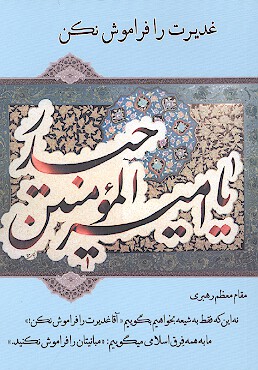 غدیرت را فراموش نکن
یا امیرالمؤمنین حیدر
مقام معظم رهبری
نه این که فقط به شیعه بخواهیم بگوییم «آقا غدیرت را فراموش نکن!»
ما به همه فِرَق اسلامی میگوییم: «مبانیتان را فراموش نکنید.»